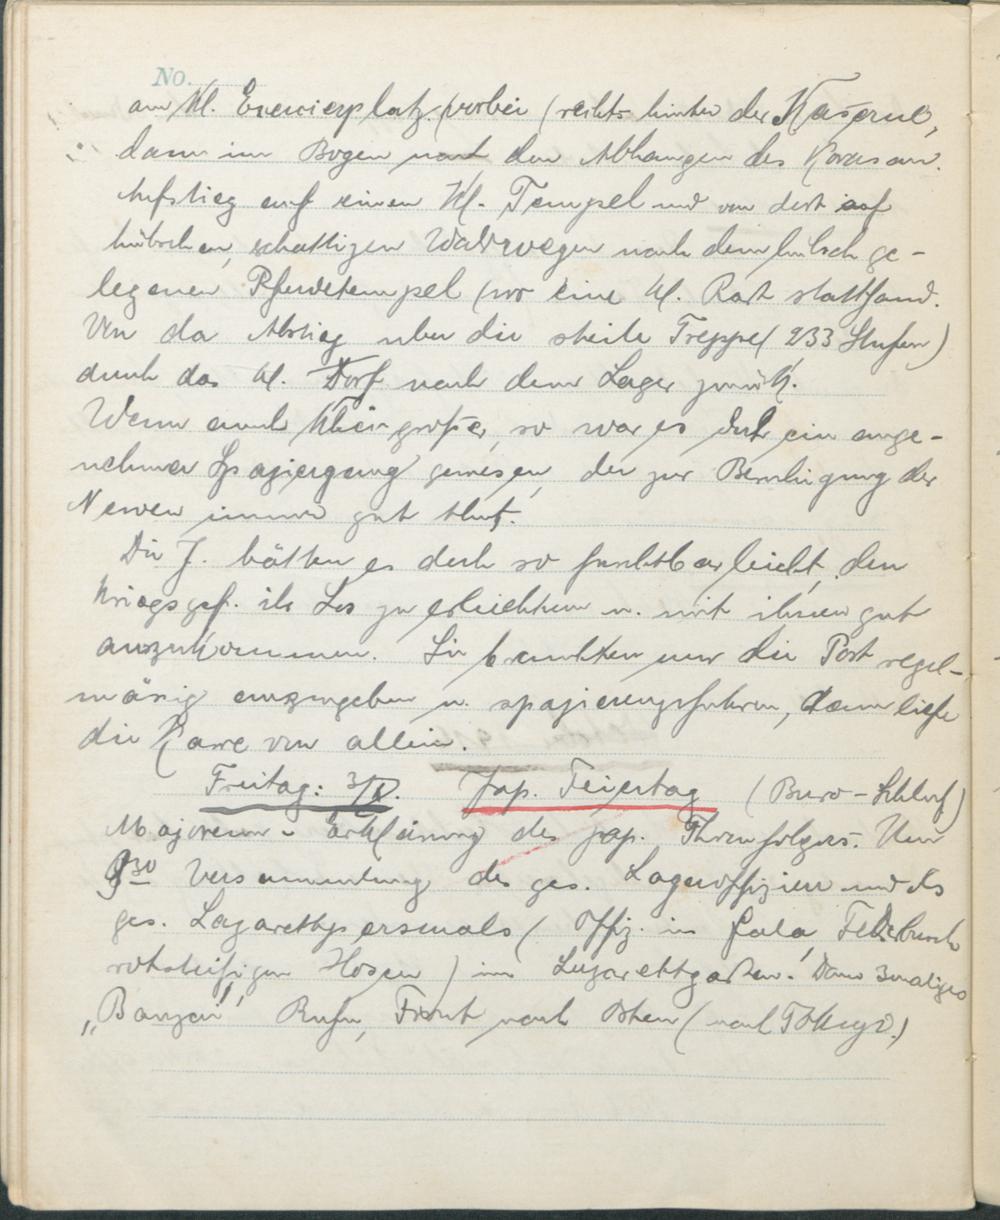 No.
am kl. Exercierplatz vorbei (rechts hinter der Kaserne,
dann im Bogen nach den Abhängen des Korasan.
Aufstieg auf einen kl. Tempel und von dort auf
hübschen, schattigen Waldwegen nach dem hübsch ge-
legenen Pferdetempel (wo eine kl. Rast stattfand.
Von da Abstieg über die steile Treppe (233 Stufen)
durch das kl. Dorf nach dem Lager zurück.
Wenn auch kein großer, so war es doch ein ange-
nehmer Spaziergang gewesen, der zur Beruhigung der
Nerven immer gut thut.
Die J. hätten es doch so furchtbar leicht, den
Kriegsgef. ihr Los zu erleichtern u. mit ihnen gut
auszukommen. Sie brauchten nur die Post regel-
mäsig auszugeben u. spazierengführen, dann liefe
die Karre von allein.
Freitag: 3/XI. Jap. Feiertag (Buro-Schluß)
Majorenn-Erklärung des jap. Thronfolgers. Um
9 30 Versammlung des ges. Lageroffiziere und des
ges. Lazarethpersonals (Offiz. in Gala Federbusch
rotstreifigen Hosen) im Lazarettgarten. Dann 3maliges
„Banzai" Rufen, Front nach Osten (nach Tokyo.)